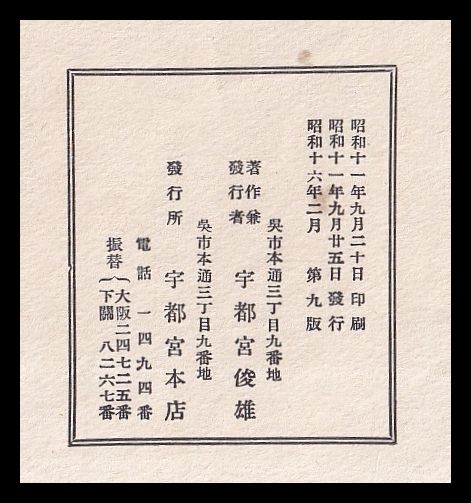 昭和十一年九月二十日 印刷
昭和十一年九月廿五日 發行
昭和十六年二月 第九版
吳市本通三丁目九番地
著作兼
發行者 宇都宮俊雄
吳市本通三丁目九番地
發行所 宇都宮本店
電話 一四九四番
振替{大阪二四七二五番
下關 八二六七番